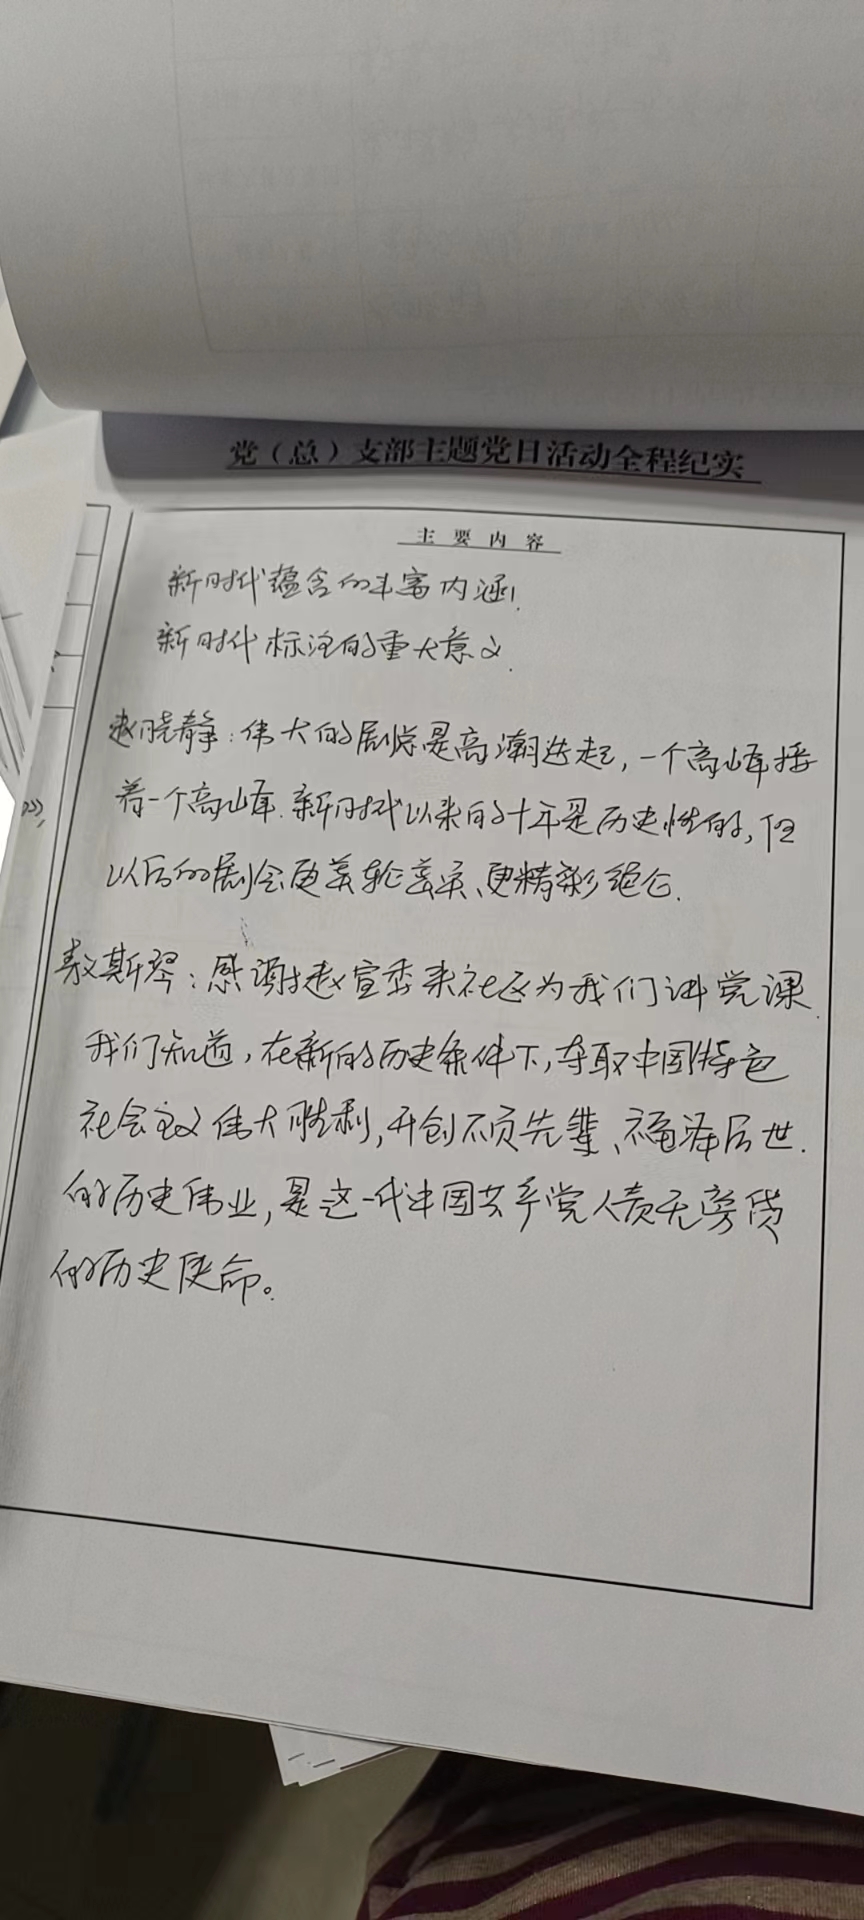 党（总）支部主题党日活动全程纪实
主要内容
新时代蕴含的丰富内涵!
新时代标注的重大意义.
赵晓静:伟大的剧总是高潮迭起,一个高峰接
着一个高峰.新时代以来的十年是历史性的,但
以后的剧会更美轮美奂、更精彩绝仑.
敖斯琴:感谢赵宣委来社区为我们讲党课.
我们知道,在新的历史条件下,夺取中国特色
社会主义伟大胜利,开创不负先辈、福泽后世.
的历史伟业,是这一代中国共产党人责无旁贷
的历史使命。